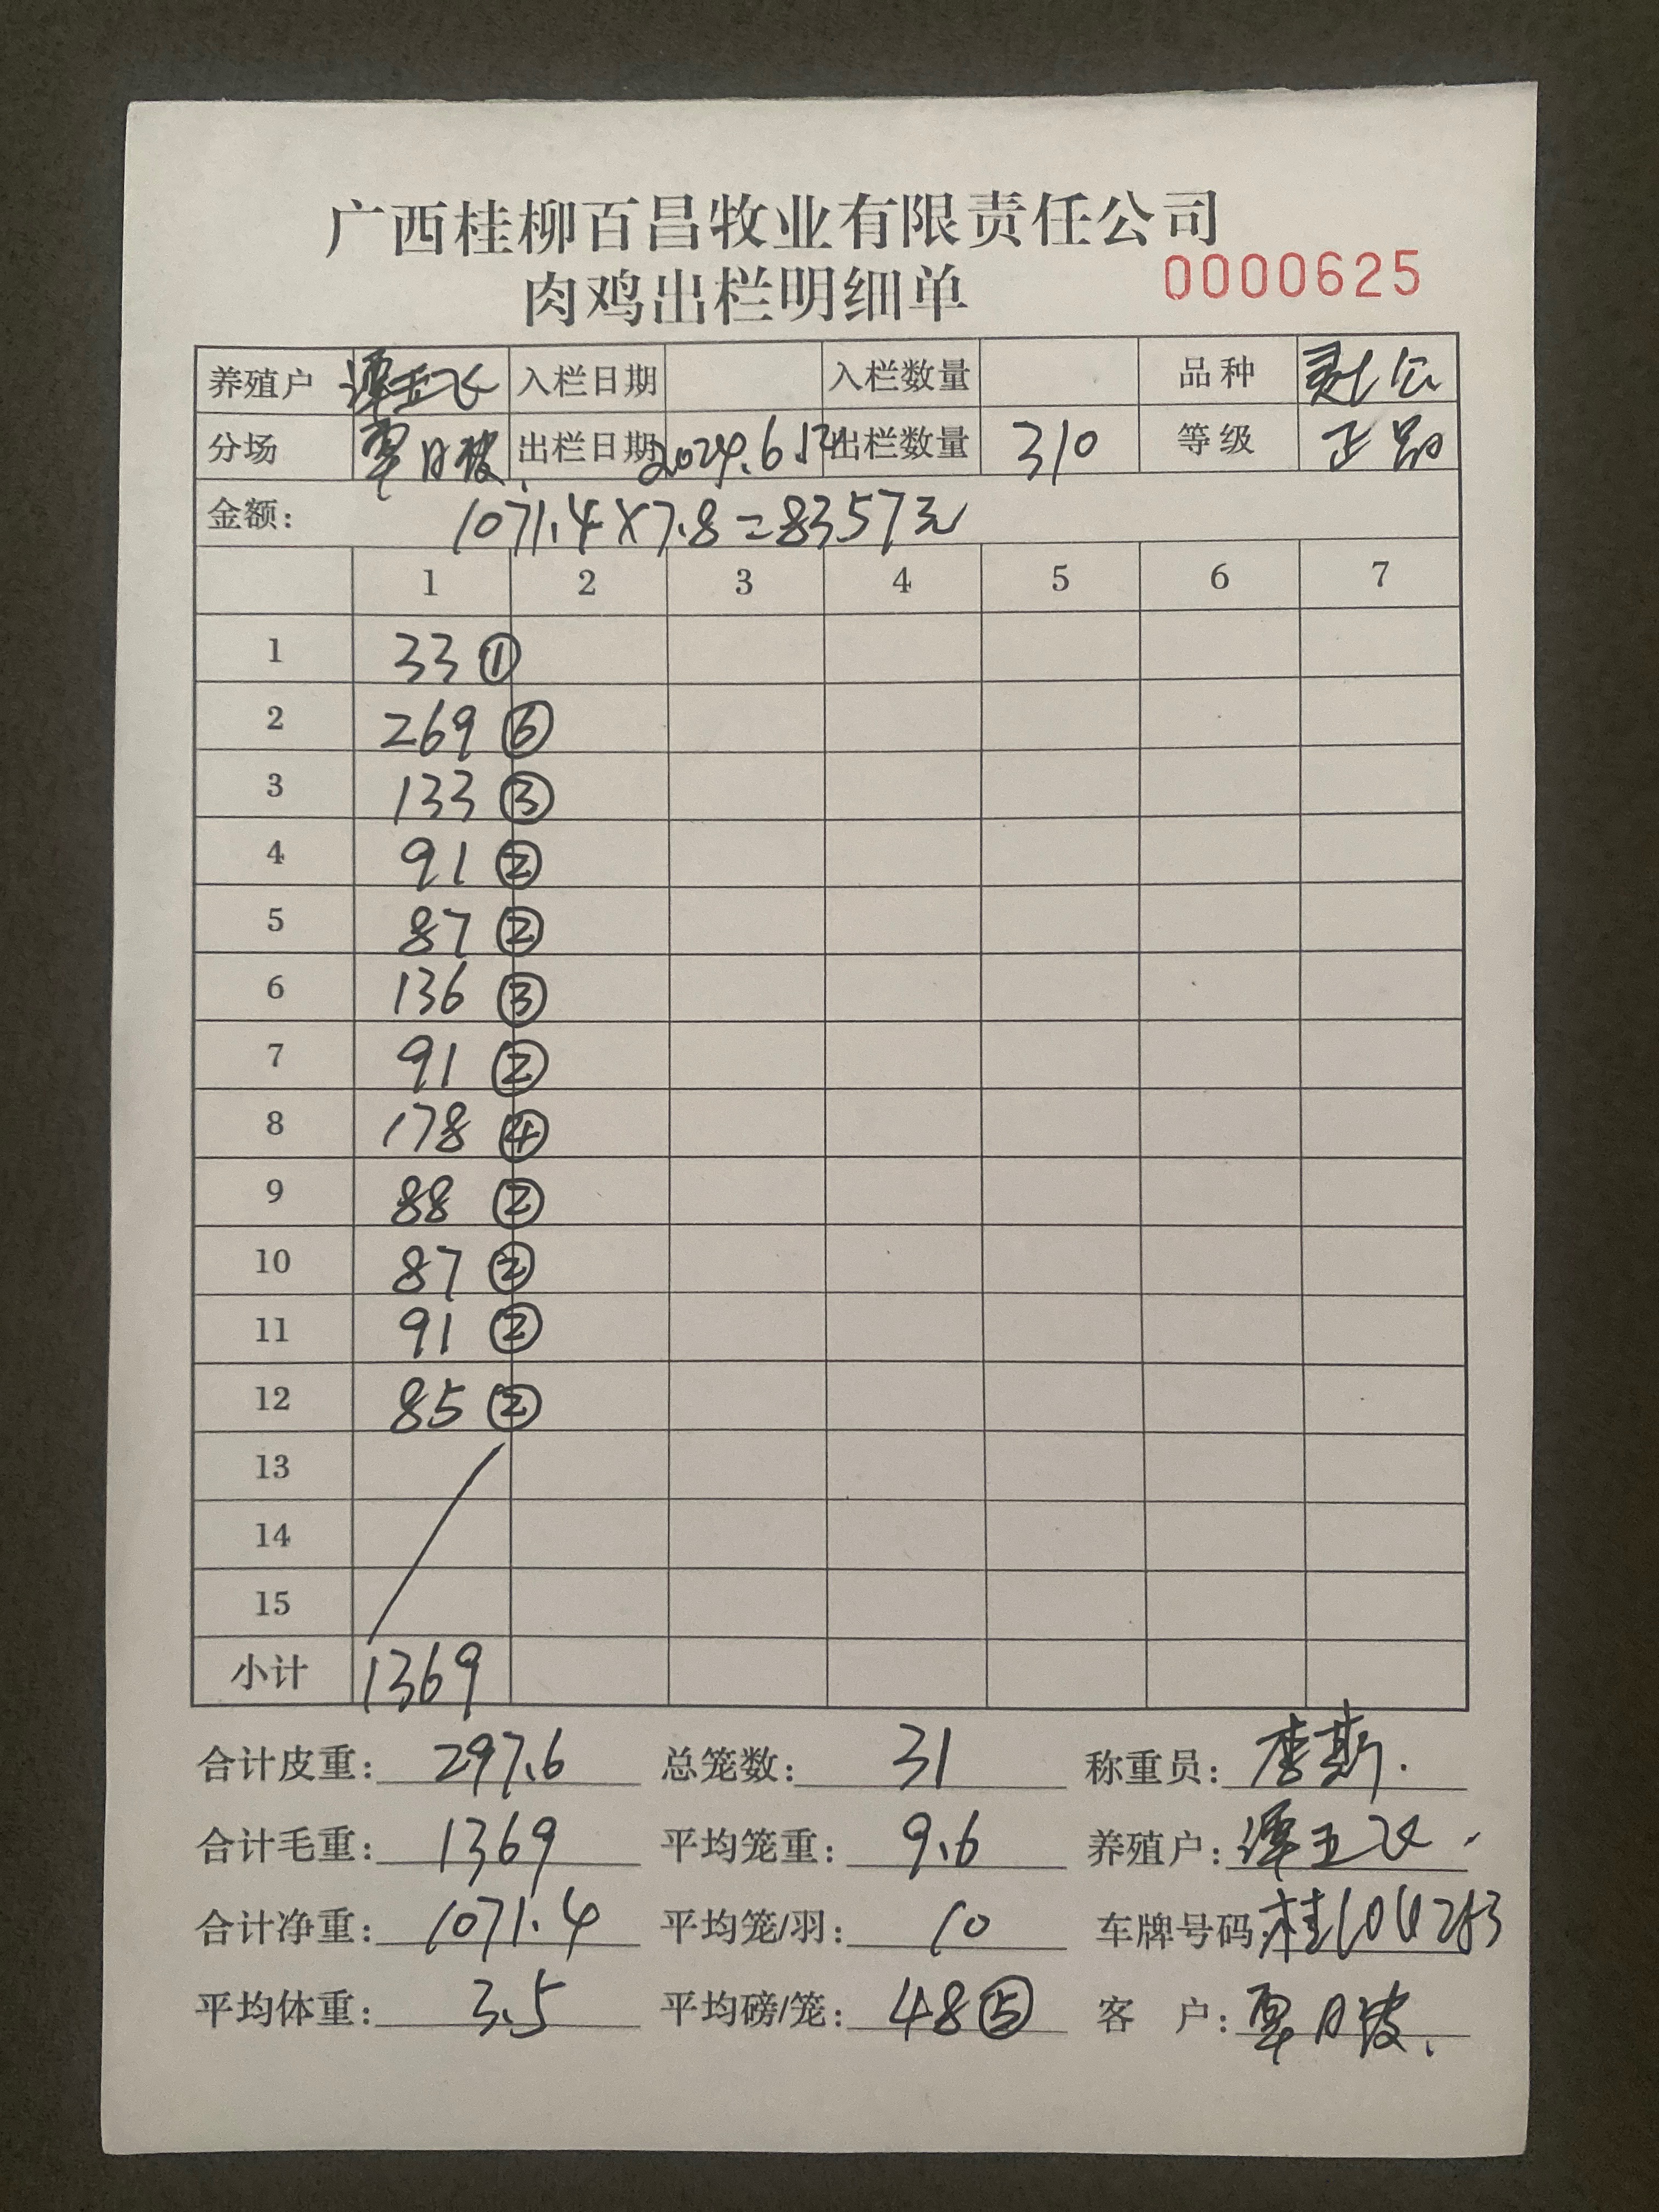 广西桂柳百昌牧业有限责任公司
肉鸡出栏明细单 0000625
养殖户 谭五飞 入栏日期 入栏数量 品种 公
分场 覃月 出栏日期 2024.6 出栏数量 310 等级 正品
金额: 1071.4×7.8=8357元
1 2 3 4 5 6 7
1 33 ①
2 269 ⑥
3 133 ③
4 91 ②
5 87 ②
6 136 ③
7 91 ②
8 178 ④
9 88 ②
10 87 ②
11 91 ②
12 85 ②
13
14
15
小计 1369
合计皮重: 297.6 总笼数: 31 称重员: 李斯.
合计毛重: 1369 平均笼重: 9.6 养殖户: 谭五飞
合计净重: 1071.4 平均笼/羽: 10 车牌号码: 桂
平均体重: 3.5 平均磅/笼: 48 ⑤ 客 户: 覃月